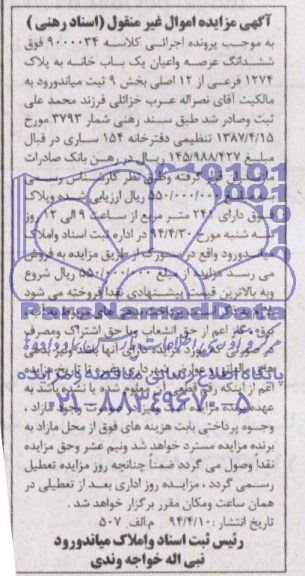 آگهی مزایده اموال غیر منقول (اسناد رهنی)
به موجب پرونده اجرائی کلاسه ۹۰۰۰۰۳۴ فوق
ششدانگ عرصه واعیان یک باب خانه به پلاک
۱۲۷۴ فرعی از ۱۲ اصلی بخش ۹ ثبت میاندورود به
مالکیت آقای نصراله عرب خزائلی فرزند محمد علی
ثبت وصادر شد طبق سند رهنی شمار ۳۷۹۳ مورخ
۱۳۸۷/۴/۱۵ تنظیمی دفترخانه ۱۵۴ ساری در قبال
مبلغ ۱۴۵/۹۸۸/۴۲۷ ریال در رهن بانک صادرات
قرار گرفته وطبق نظر کارشناس رسمی
به مبلغ ۵۵۰/۰۰۰/۰۰۰ ریال ارزیابی شده وپلاک
فوق دارای ۲۴۲ متر مربع از ساعت ۹ الی ۱۲ روز
سه شنبه مورخ ۹۴/۴/۳۰ در اداره ثبت اسناد واملاک
میاندورود واقع در سورک از طریق مزایده به فروش
می رسد مزایده از مبلغ ۵۵۰/۰۰۰/۰۰۰ ریال شروع
وبه بالاترین قیمت پیشنهادی نقدا فروخته می شود
برق، گاز اعم از حق انشعاب ویا حق اشتراک ومصرف
در صورتی که مورد مزایده دارای آنها باشد ونیز بدهی
پایگاه اطلاع رسانی مناقصه و مزایده
اعم از اینکه رقم قطعی آن معلوم شده یا نشده باشد به
۰۲۱-۸۸۳۴۹۶۷۰-۵
عهده برنده مزایده است ونیز در صورت وجود مازاد ،
وجوه پرداختی بابت هزینه های فوق از محل مازاد به
برنده مزایده مسترد خواهد شد ونیم عشر وحق مزایده
نقداً وصول می گردد ضمناً چنانچه روز مزایده تعطیل
رسمی گردد ، مزایده روز اداری بعد از تعطیلی در
همان ساعت ومکان مقرر برگزار خواهد شد .
تاریخ انتشار : ۹۴/۴/۱۰ م.الف ۵۰۷
رئیس ثبت اسناد واملاک میاندورود
نبی اله خواجه وندی